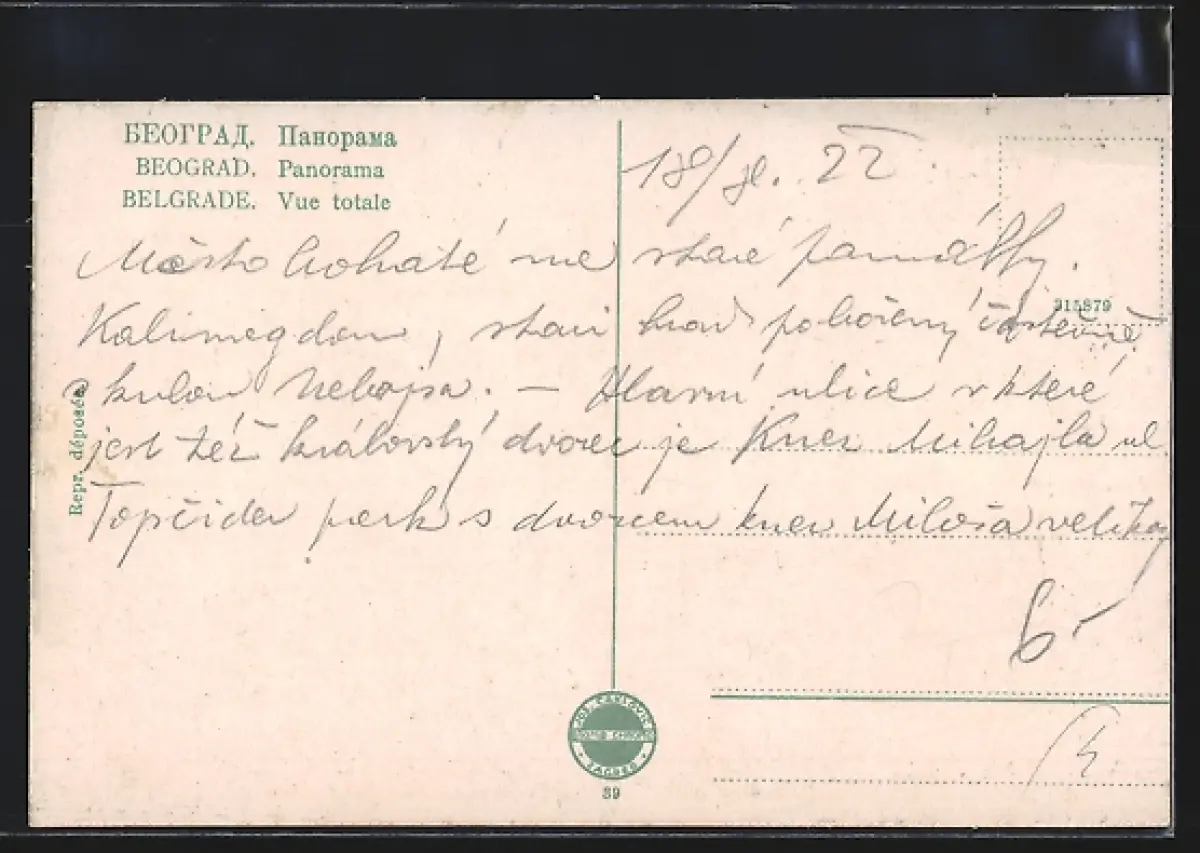 БЕОГРАД. Панорама
BEOGRAD. Panorama
BELGRADE. Vue totale
18/ 22
Město bohaté na staré památky.
315879
Kalimegdan, stari hrad pobořený částečně
kulou Nebojsa. — Hlavní ulice v které
jest též královský dvorec je Knez Mihajla ul
Topčider park s dvorcem knez Miloša velikog
Repr. déposée
6-
ZAGREB
39